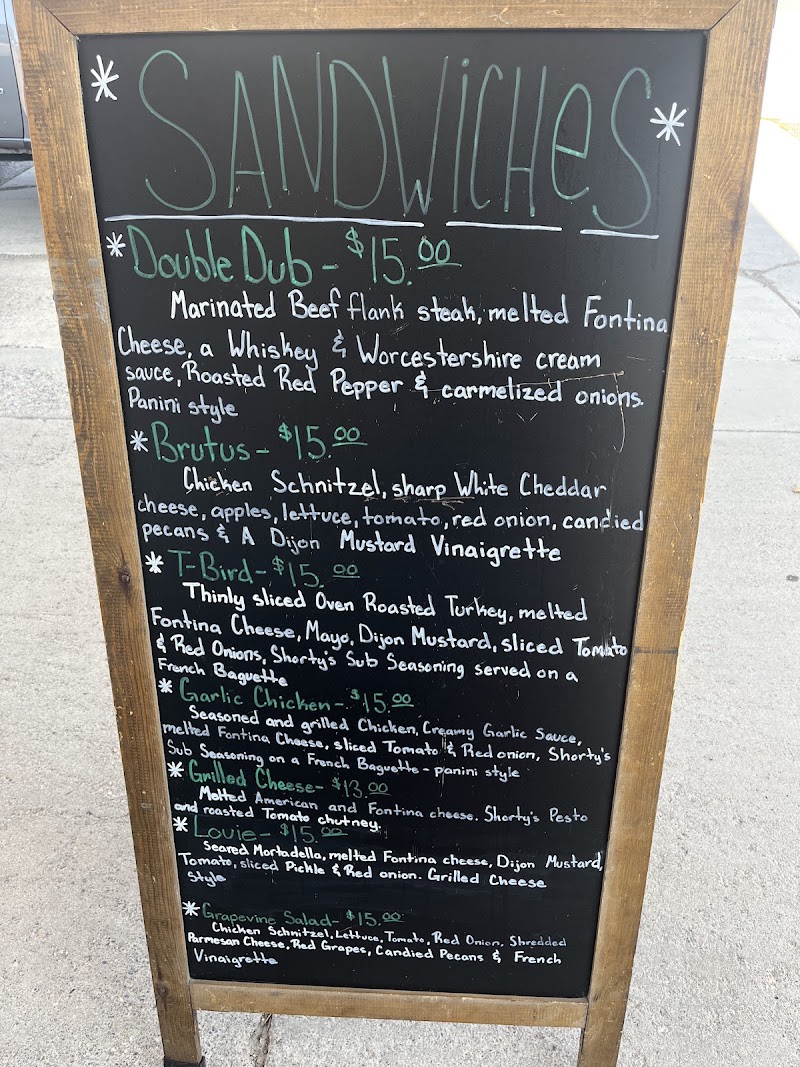 * SANDWiCHeS *
* Double Dub - $15.00
Marinated Beef flank steak, melted Fontina
Cheese, a Whiskey & Worcestershire cream
sauce, Roasted Red Pepper & carmelized onions.
Panini style
* Brutus - $15.00
Chicken Schnitzel, sharp White Cheddar
cheese, apples, lettuce, tomato, red onion, candied
pecans & A Dijon Mustard Vinaigrette
* T-Bird - $15.00
Thinly sliced Oven Roasted Turkey, melted
Fontina Cheese, Mayo, Dijon Mustard, sliced Tomato
& Red Onions, Shorty's Sub Seasoning served on a
French Baguette
* Garlic Chicken - $15.00
Seasoned and grilled Chicken, Creamy Garlic Sauce,
melted Fontina Cheese, sliced Tomato & Red onion, Shorty's
Sub Seasoning on a French Baguette - panini style
* Grilled Cheese - $13.00
Melted American and Fontina cheese. Shorty's Pesto
and roasted Tomato chutney.
* Louie - $15.00
Seared Mortadella, melted Fontina cheese, Dijon Mustard,
Tomato, sliced Pickle & Red onion. Grilled Cheese
Style
* Grapevine Salad - $15.00
Chicken Schnitzel, Lettuce, Tomato, Red Onion, Shredded
Parmesan Cheese, Red Grapes, Candied Pecans & French
Vinaigrette